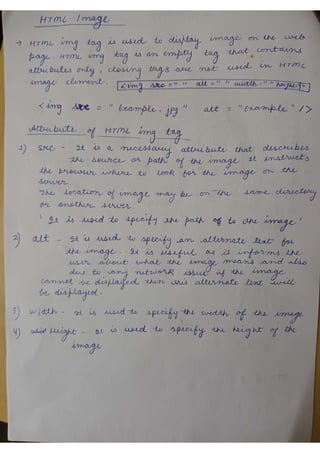 HTML Image
→ HTML img tag is used to display image on the web
page HTML img tag is an empty tag that contains
attributes only, closing tags are not used in HTML
image element. <img src=" " alt=" " width=" " height="
<img src = "Example.jpg" alt = "Example" />
Attribute of HTML img tag
1) SRC - It is a necessary attribute that describes
the source or path of the image It instructs
the browser where to look for the image on the
server.
The location of image may be on the same directory
or another server.
' It is used to specify the path of to the image'
2) alt - It is used to specify an alternate text for
the image. It is useful as it informs the
user about what the image means and also
due to any network issue if the image
cannot be displayed then this alternate text will
be displayed.
3) Width - It is used to specify the width of the image
4) Height - It is used to specify the height of the
image